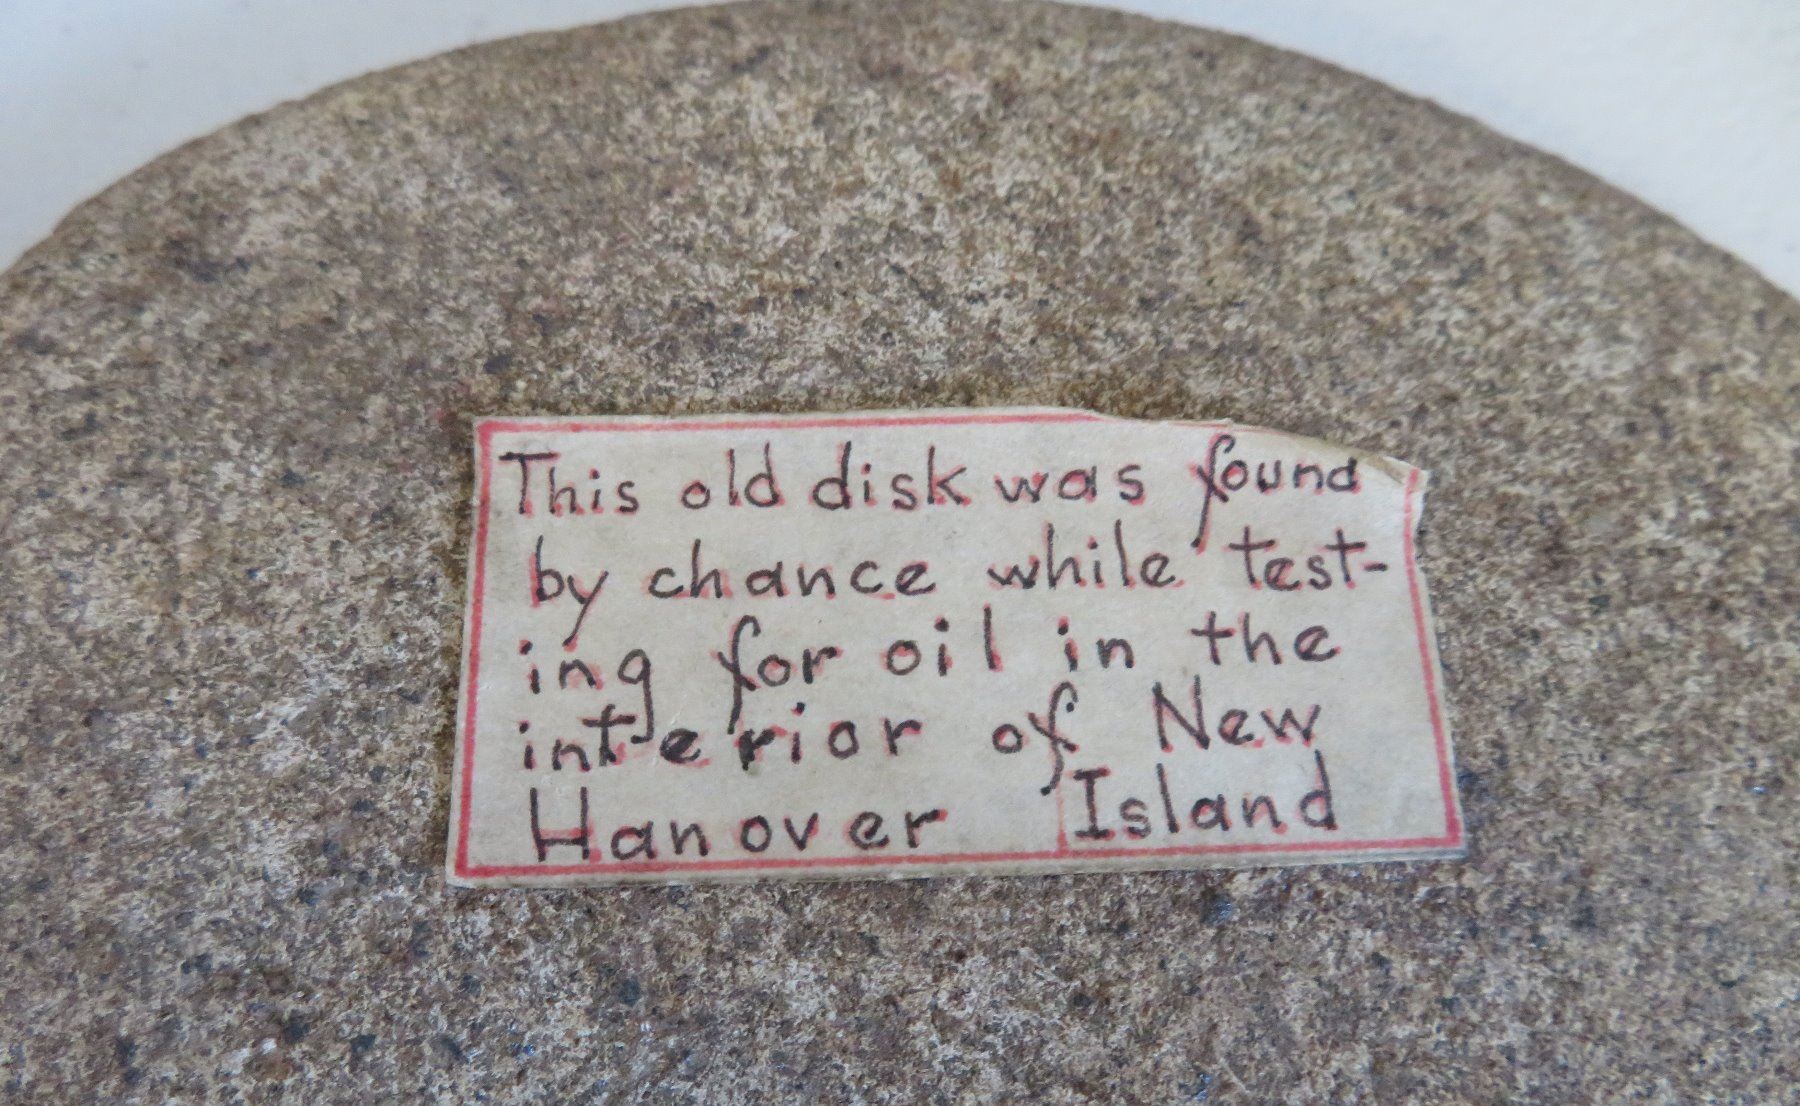 This old disk was found
by chance while test-
ing for oil in the
interior of New
Hanover Island